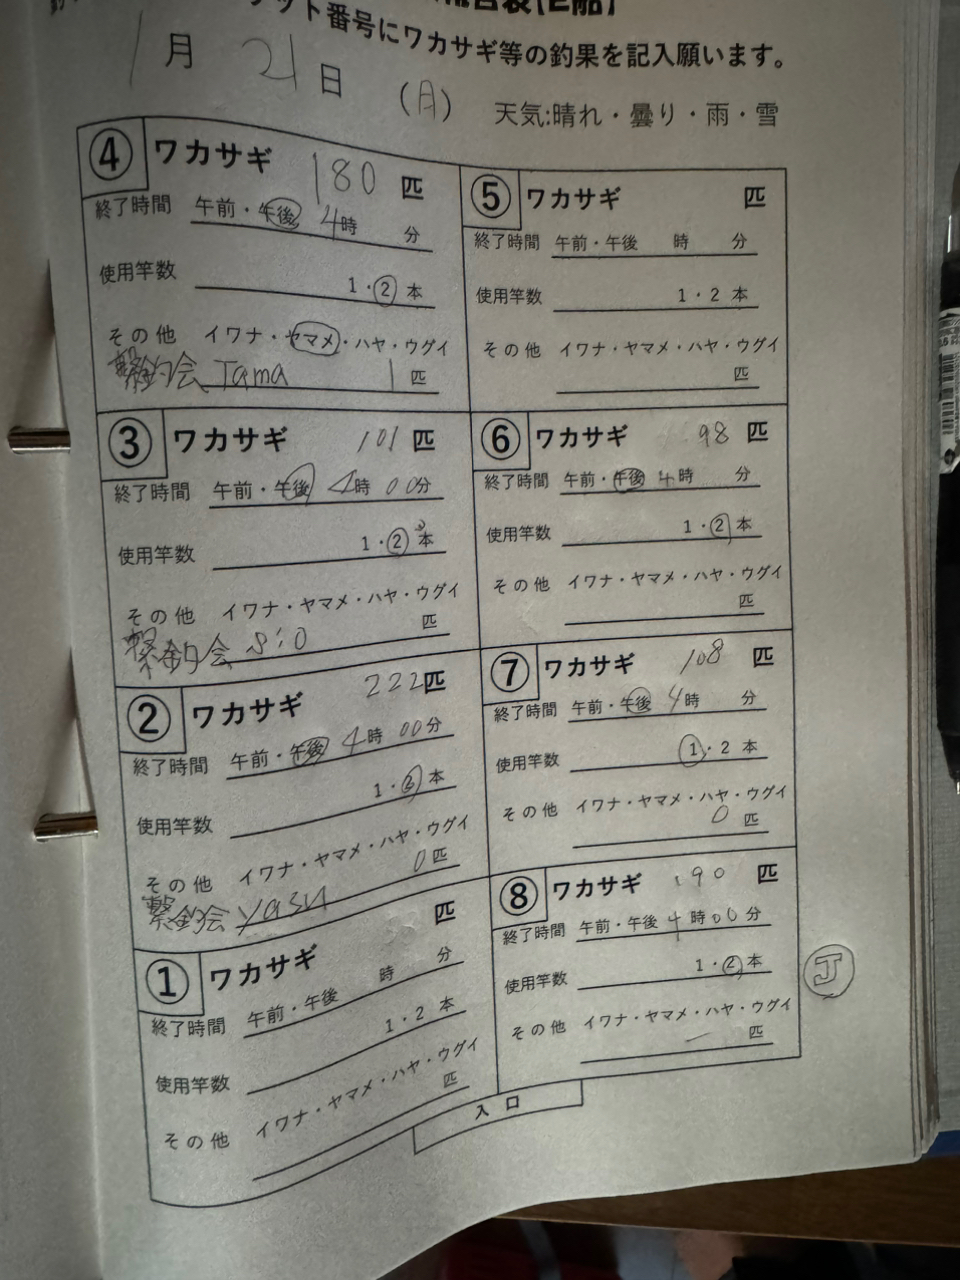 ット番号にワカサギ等の釣果を記入願います。
1月 21日 (月) 天気:晴れ・曇り・雨・雪
④ ワカサギ 180 匹
終了時間 午前・午後 4時 分
使用竿数 1・2 本
その他 イワナ・ヤマメ・ハヤ・ウグイ
繋釣会 Tama 1 匹
③ ワカサギ 101 匹
終了時間 午前・午後 4時 00分
使用竿数 1・2 本
その他 イワナ・ヤマメ・ハヤ・ウグイ
匹
繋釣会 Sio
② ワカサギ 222匹
終了時間 午前・午後 4時 00分
使用竿数 1・2 本
その他 イワナ・ヤマメ・ハヤ・ウグイ
0匹
繋釣会 yasu
① ワカサギ 匹
終了時間 午前・午後 時 分
使用竿数 1・2 本
その他 イワナ・ヤマメ・ハヤ・ウグイ
匹
⑤ ワカサギ 匹
終了時間 午前・午後 時 分
使用竿数 1・2 本
その他 イワナ・ヤマメ・ハヤ・ウグイ
匹
⑥ ワカサギ 98 匹
終了時間 午前・午後 4時 分
使用竿数 1・2 本
その他 イワナ・ヤマメ・ハヤ・ウグイ
匹
⑦ ワカサギ 108 匹
終了時間 午前・午後 4時 分
使用竿数 1・2 本
その他 イワナ・ヤマメ・ハヤ・ウグイ
0 匹
⑧ ワカサギ 190 匹
終了時間 午前・午後 4時00分
使用竿数 1・2 本
その他 イワナ・ヤマメ・ハヤ・ウグイ
匹
J
入口